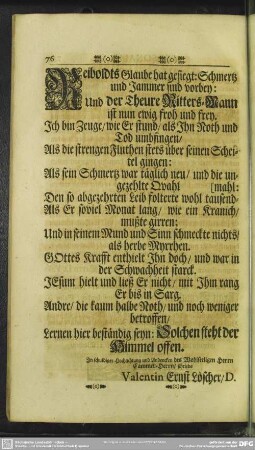 76
Reiboldts Glaube hat gesiegt: Schmertz
und Jammer sind vorbey:
Und der Theure Ritters-Mann
ist nun ewig froh und frey.
Ich bin Zeuge/ wie Er stund/ als Ihn Noth und
Tod umbfingen/
Als die strengen Fluthen stets über seinen Schei-
tel giengen:
Als sein Schmertz war täglich neu/ und die un-
gezehlte Qvahl [mahl:
Den so abgezehrten Leib folterte wohl tausend-
Als Er soviel Monat lang/ wie ein Kranich/
mußte girren:
Und in seinem Mund und Sinn schmeckte nichts/
als herbe Myrrhen.
GOttes Krafft enthielt Ihn doch/ und war in
der Schwachheit starck.
JEsum hielt und ließ Er nicht/ mit Ihm rang
Er bis in Sarg.
Andre/ die kaum halbe Noth/ und noch weniger
betroffen/
Lernen hier beständig seyn: Solchen steht der
Himmel offen.
In schuldiger Hochachtung und Andencken des Wohlseeligen Herrn
Cammer-Herrn/ schriebs
Valentin Ernst Löscher/ D.